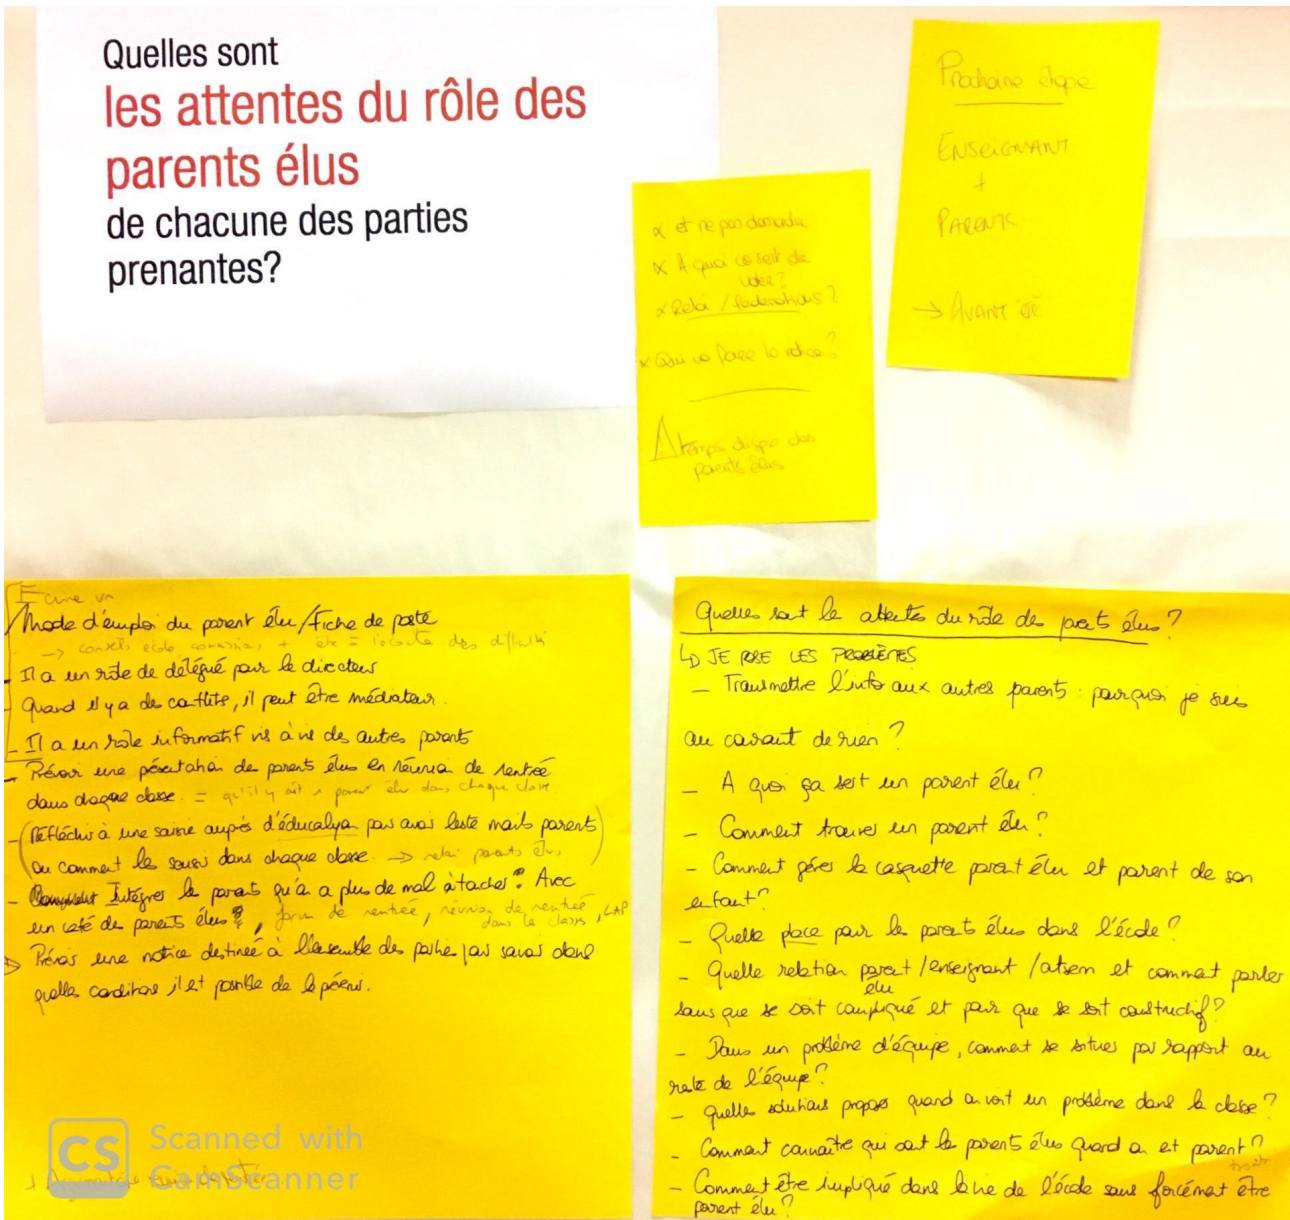 Quelles sont
les attentes du rôle des
parents élus
de chacune des parties
prenantes?
Prochaine étape
ENSEIGNANT
+
PARENTS
→ AVANT ÉTÉ
x et ne pas demander
x A quoi ce sert de
voter?
x Relai / fédérations?
x Qui va faire la notice?
temps dispo des
parents élus
Ecrire un
Mode d'emploi du parent élu/Fiche de poste
→ conseils école + être = l'écoute des difficultés
- Il a un rôle de délégué pour le directeur
- Quand il y a des conflits, il peut être médiateur.
- Il a un rôle informatif vis à vis des autres parents
- Prévoir une présentation de parents élus en réunion de rentrée
dans chaque classe. = qu'il y ait 1 parent élu dans chaque classe
- (Réfléchir à une saisie auprès d'éducalya pour avoir liste mails parents
ou comment les saisir dans chaque classe → relai parents élus)
- Intégrer les parents qu'on a plus de mal à toucher? Avec
un café des parents élus, forum de rentrée, réunion de rentrée
dans la classe, LAP
→ Prévoir une notice destinée à l'ensemble des parties pour savoir dans
quelles conditions il est possible de le prévenir.
Quelles sont les attentes du rôle des parents élus?
↳ JE POSE LES PROBLÈMES
- Transmettre l'info aux autres parents : pourquoi je suis
au courant de rien?
- A quoi ça sert un parent élu?
- Comment trouver un parent élu?
- Comment gérer la casquette parent élu et parent de son
enfant?
- Quelle place pour les parents élus dans l'école?
- Quelle relation parent/enseignant/atsem et comment parler
élu
sans que se soit compliqué et pour que se soit constructif?
- Dans un problème d'équipe, comment se situer par rapport au
reste de l'équipe?
- quelles solutions proposer quand on voit un problème dans la classe?
- Comment connaître qui sont les parents élus quand on est parent?
- Comment être impliqué dans la vie de l'école sans forcément être
parent élu?
CS Scanned with
CamScanner